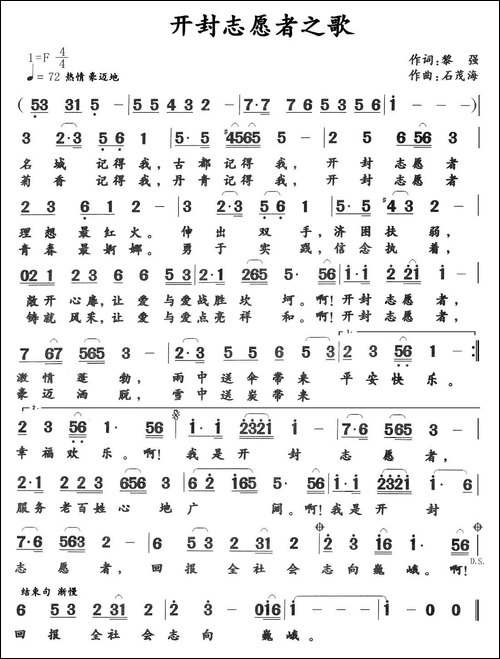 开封志愿者之歌
1=F 4/4
作词:黎 强
♩= 72 热情 豪迈地
作曲:石茂海
( 53 31 5 - | 5 5 4 3 2 - | 7·7 7 6 5 3 5 6 | i - - -) |
3 2·3 5 6 1 | 5·5 #4565 5 - | 1 2 6 5 | 6 56 3 - |
名城 记得我,古都记得我, 开封志愿者
菊香 记得我,丹青记得我, 开封志愿者
2 3 6 1 2 - | 3 2·3 5·6 | 1 6 3·5 5· | #4 3 2 - |
理想最红火。 伸出双手,济困扶弱,
青春最婀娜。 勇于实践,信念执着,
敞开心扉,让爱与爱战胜坎坷。啊!开封志愿者,
铸就风采,让爱与爱点亮祥和。啊!开封志愿者,
1.
7 67 565 3 - | 2·3 5 5 6 5 3 | 2 2 3 56 | 1 - :||
激情蓬勃, 雨中送伞带来 平安快乐。
豪迈洒脱, 雪中送炭带来
2.
幸福欢乐。啊!我是开封志愿者,
服务老百姓心地广阔。啊!我是开封
7·6 563 2 - | 6 5 3 2 31 | 2 3 i6 | i· 56 |
志愿者, 回报全社会志向巍峨。啊!
D.S.
结束句 渐慢
6 5 3 2 31 | 2· 3 - | 0i6 | i - - - | i - 0 0 ||
回报全社会志向 巍峨。